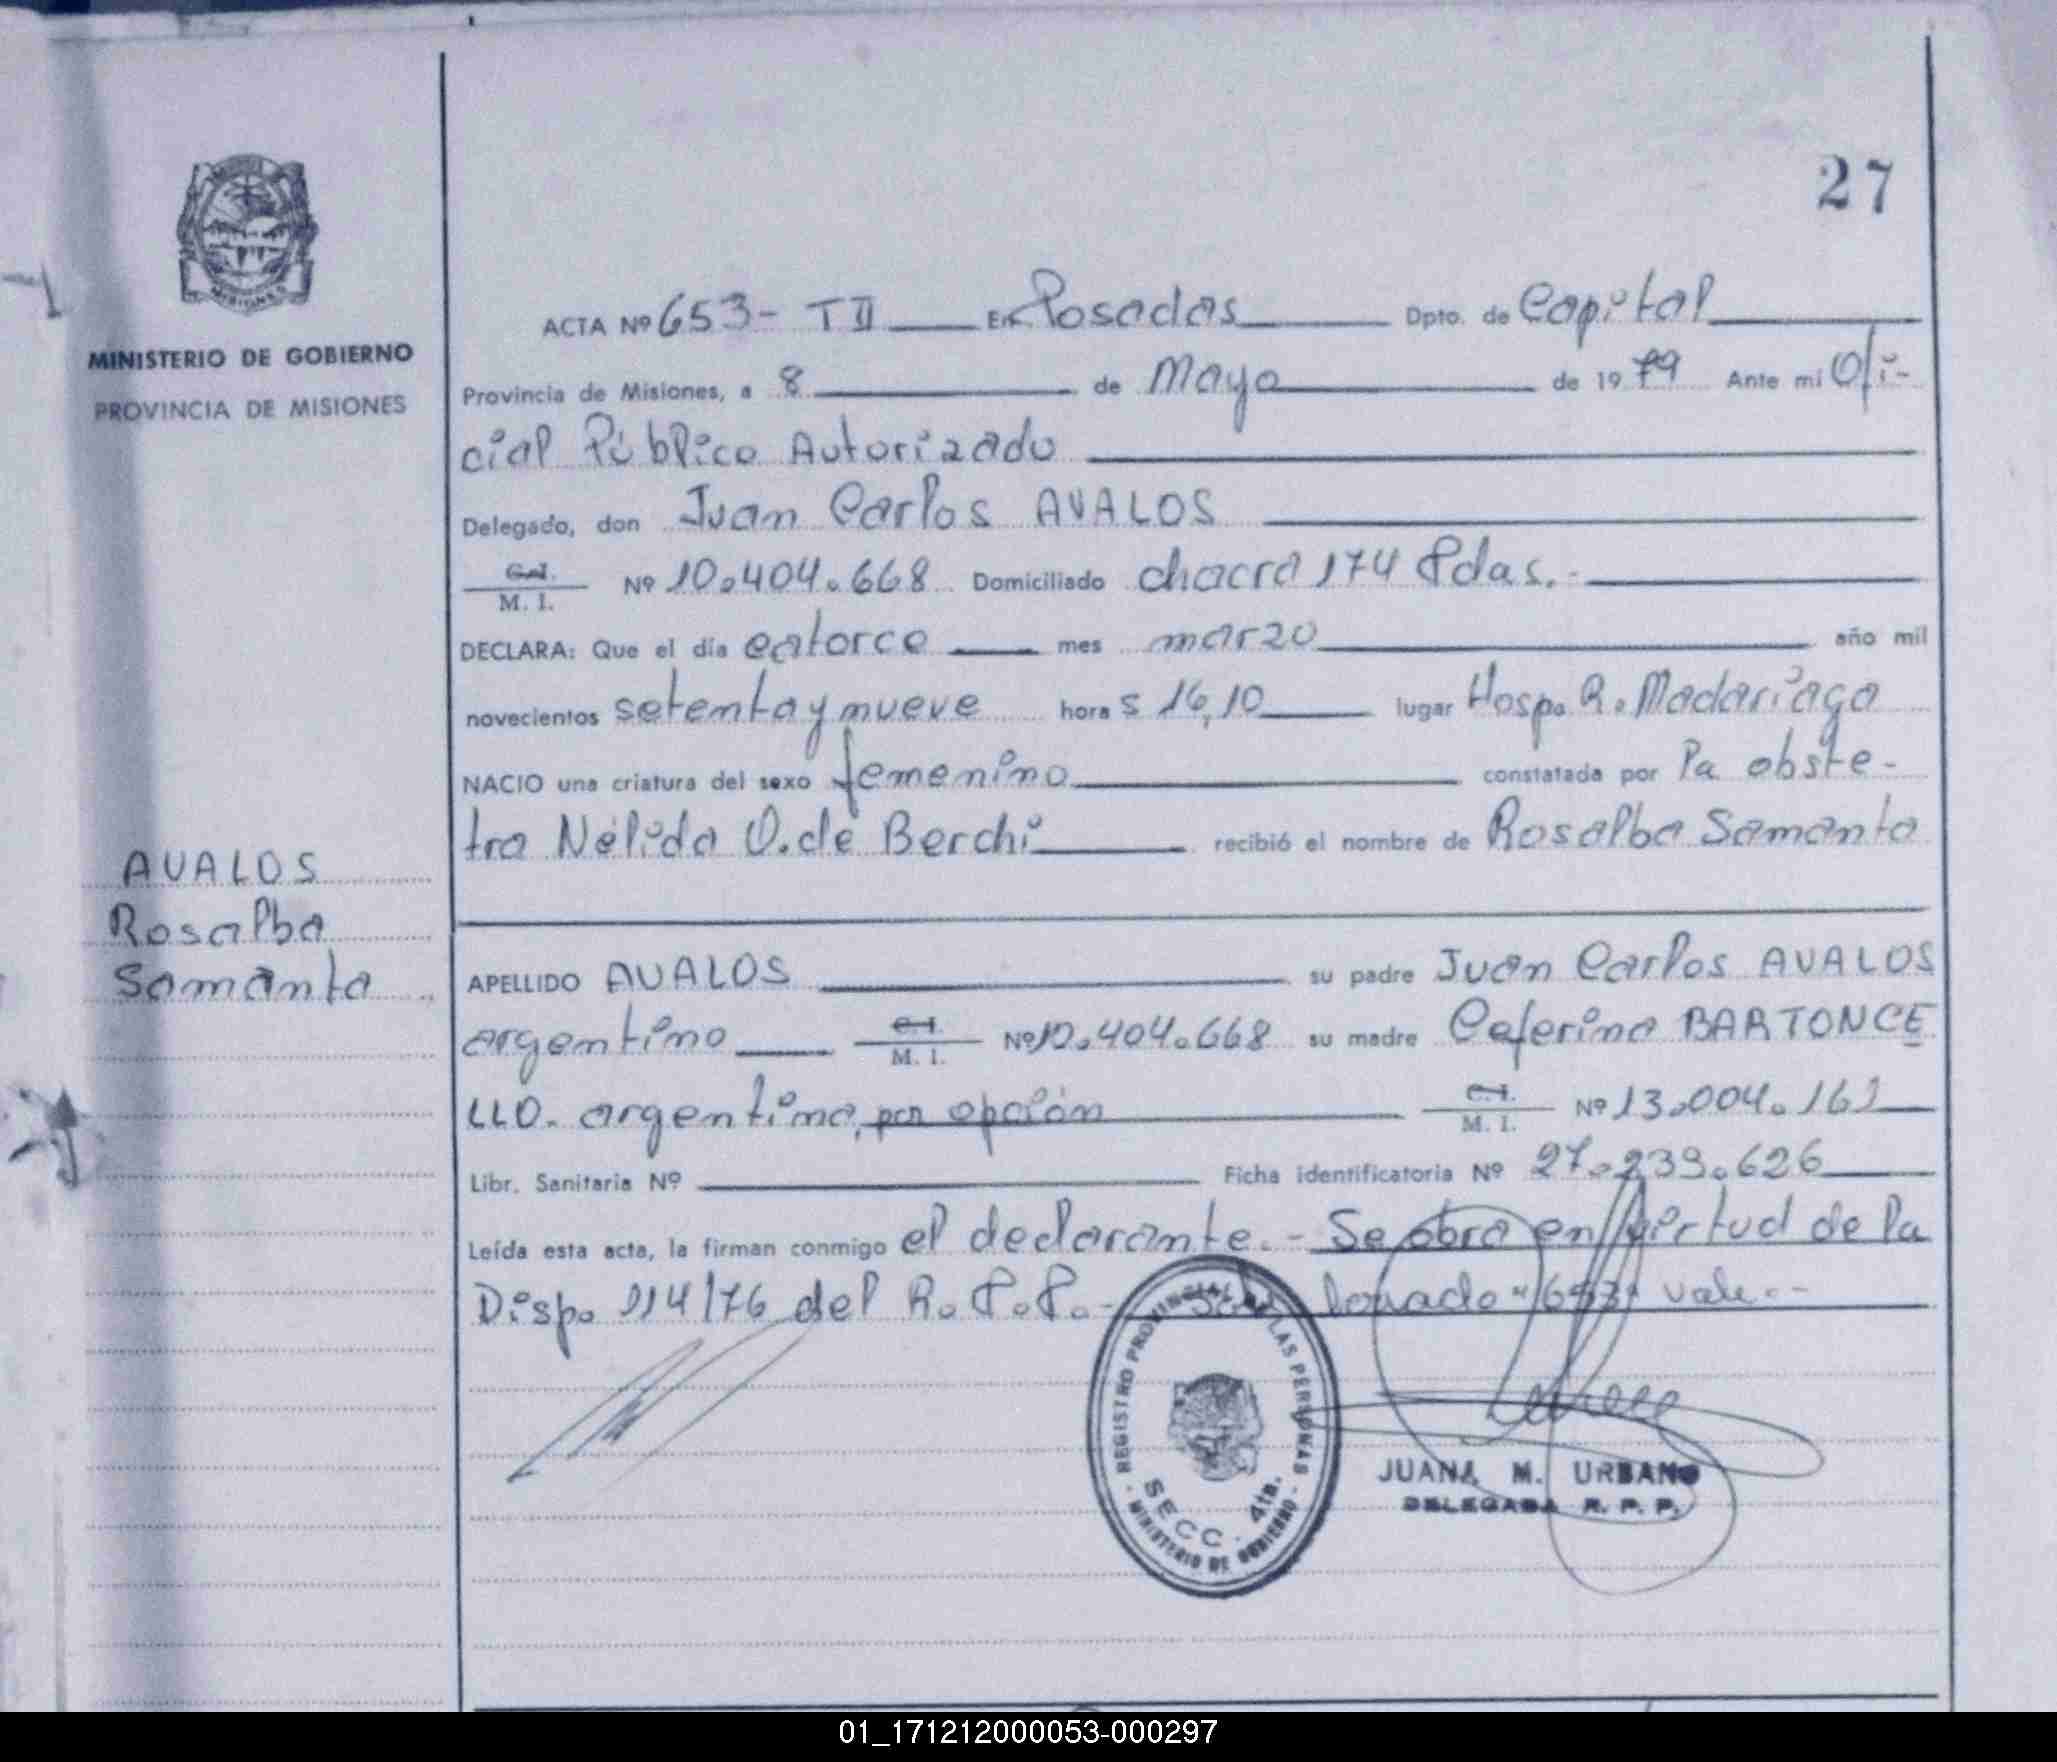 27
MINISTERIO DE GOBIERNO
PROVINCIA DE MISIONES
AVALOS
Rosalba
Samanta
ACTA Nº 653- T II En Posadas Dpto. de Capital
Provincia de Misiones, a 8 de Mayo de 1979 Ante mi Ofi-
cial Público Autorizado
Delegado, don Juan Carlos AVALOS
C.I. M. I. Nº 10.404.668 Domiciliado chacra 174 Pdas.-
DECLARA: Que el día catorce mes marzo año mil
novecientos setenta y nueve horas 16,10 lugar Hosp. R. Madariaga
NACIO una criatura del sexo femenino constatada por la obste-
tra Nélida O. de Berchi recibió el nombre de Rosalba Samanta
APELLIDO AVALOS su padre Juan Carlos AVALOS
argentino C.I. M. I. Nº 10.404.668 su madre Ceferina BARTONCE
LLO. argentina, por opción C.I. M. I. Nº 13.004.161
Libr. Sanitaria Nº Ficha identificatoria Nº 27.239.626
Leída esta acta, la firman conmigo el declarante.- Se obra en virtud de la
Disp. 114/76 del R.P.P.- "653" vale.-
REGISTRO PROVINCIAL DE LAS PERSONAS
SECC. 4ta.
- MINISTERIO DE GOBIERNO -
JUANA M. URBANO
DELEGADA R. P. P.
01_171212000053-000297